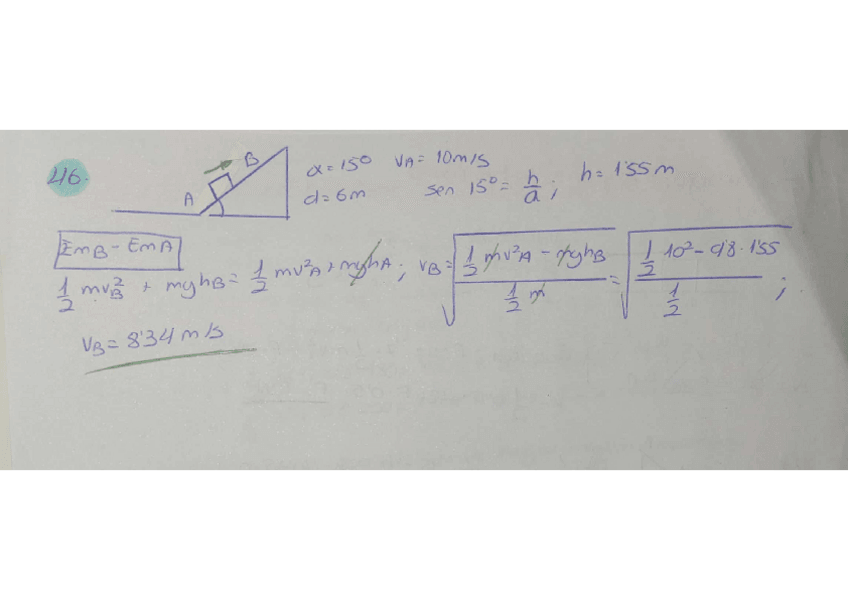 46. A B α = 15º VA = 10 m/s
d = 6 m sen 15º = h/d ; h = 1'55 m
EmB - EmA
1/2 mvB² + mghB = 1/2 mv²A + mghA ; vB = √((1/2 mv²A - mghB)/(1/2 m)) = √((1/2 10² - 9'8 · 1'55)/(1/2)) ;
VB = 8'34 m/s